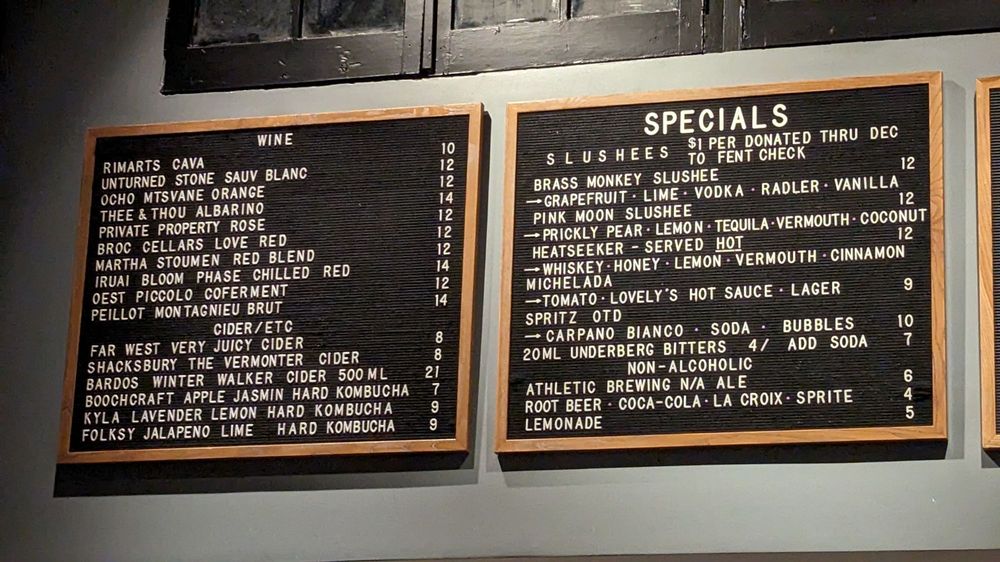 WINE
RIMARTS CAVA 10
UNTURNED STONE SAUV BLANC 12
OCHO MTSVANE ORANGE 12
THEE & THOU ALBARINO 14
PRIVATE PROPERTY ROSE 12
BROC CELLARS LOVE RED 12
MARTHA STOUMEN RED BLEND 12
IRUAI BLOOM PHASE CHILLED RED 14
OEST PICCOLO COFERMENT 12
PEILLOT MONTAGNIEU BRUT 14
CIDER/ETC
FAR WEST VERY JUICY CIDER 8
SHACKSBURY THE VERMONTER CIDER 8
BARDOS WINTER WALKER CIDER 500 ML 21
BOOCHCRAFT APPLE JASMIN HARD KOMBUCHA 7
KYLA LAVENDER LEMON HARD KOMBUCHA 9
FOLKSY JALAPENO LIME HARD KOMBUCHA 9
SPECIALS
SLUSHEES $1 PER DONATED THRU DEC
TO FENT CHECK
BRASS MONKEY SLUSHEE 12
→GRAPEFRUIT · LIME · VODKA · RADLER · VANILLA
PINK MOON SLUSHEE 12
→PRICKLY PEAR · LEMON · TEQUILA · VERMOUTH · COCONUT
HEATSEEKER - SERVED HOT 12
→WHISKEY · HONEY · LEMON · VERMOUTH · CINNAMON
MICHELADA
→TOMATO · LOVELY'S HOT SAUCE · LAGER 9
SPRITZ OTD
→CARPANO BIANCO · SODA · BUBBLES 10
20ML UNDERBERG BITTERS 4/ ADD SODA 7
NON-ALCOHOLIC
ATHLETIC BREWING N/A ALE 6
ROOT BEER · COCA-COLA · LA CROIX · SPRITE 4
LEMONADE 5